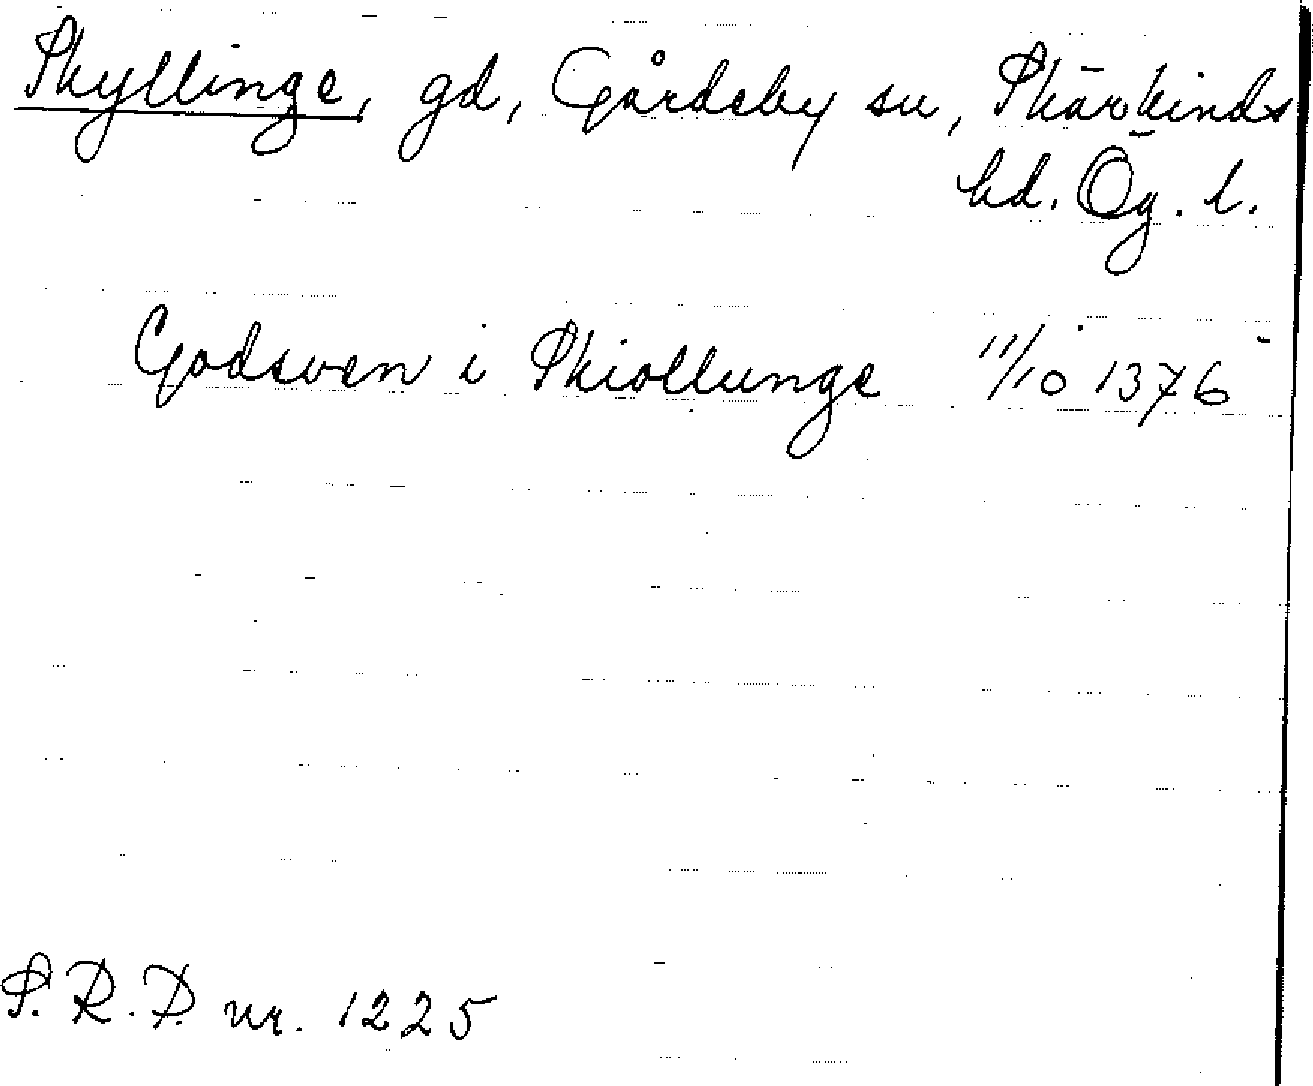 Skyllinge, gd, Gårdeby sn, Skärkinds
hd. Ög. l.
Godsven i Skiollunge 11/10 1376
S.R.P. nr. 1225